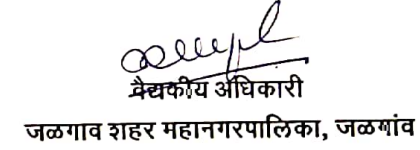 वैद्यकीय अधिकारी
जळगाव शहर महानगरपालिका, जळगांव